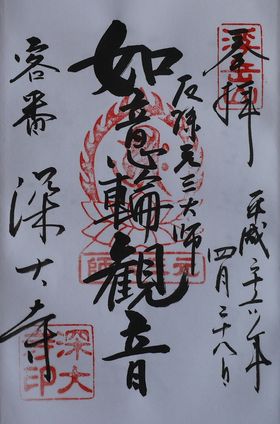 奉拝
浮岳山
平成二十年
四月二十八日
厄除元三大師
如意輪観音
客番
深大寺
深大寺印